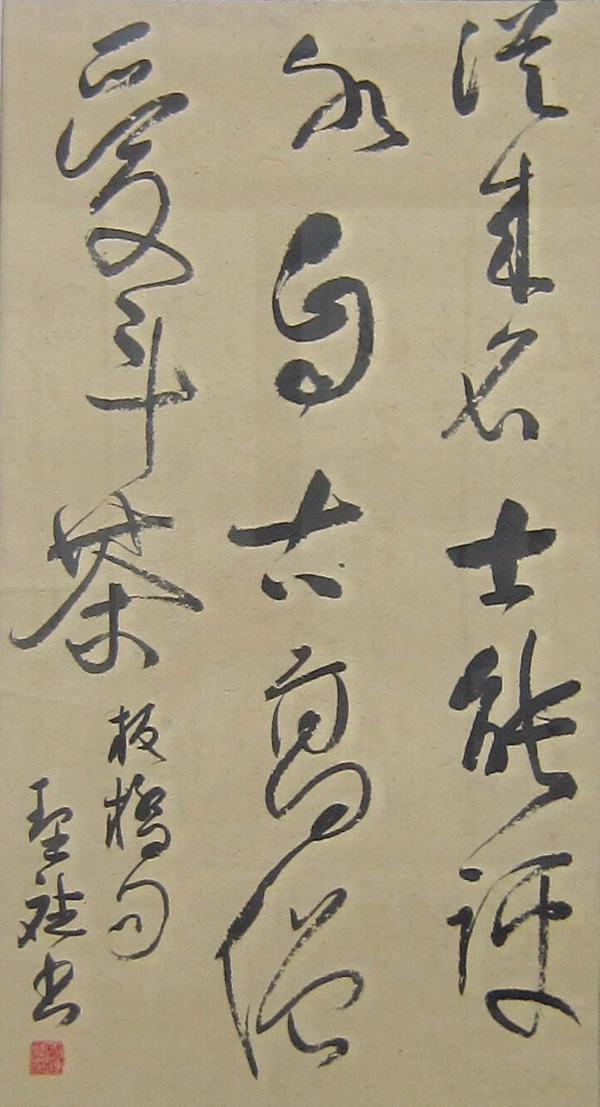 從來名士能評
水自古高僧
愛斗茶
板橋句
聖祉书